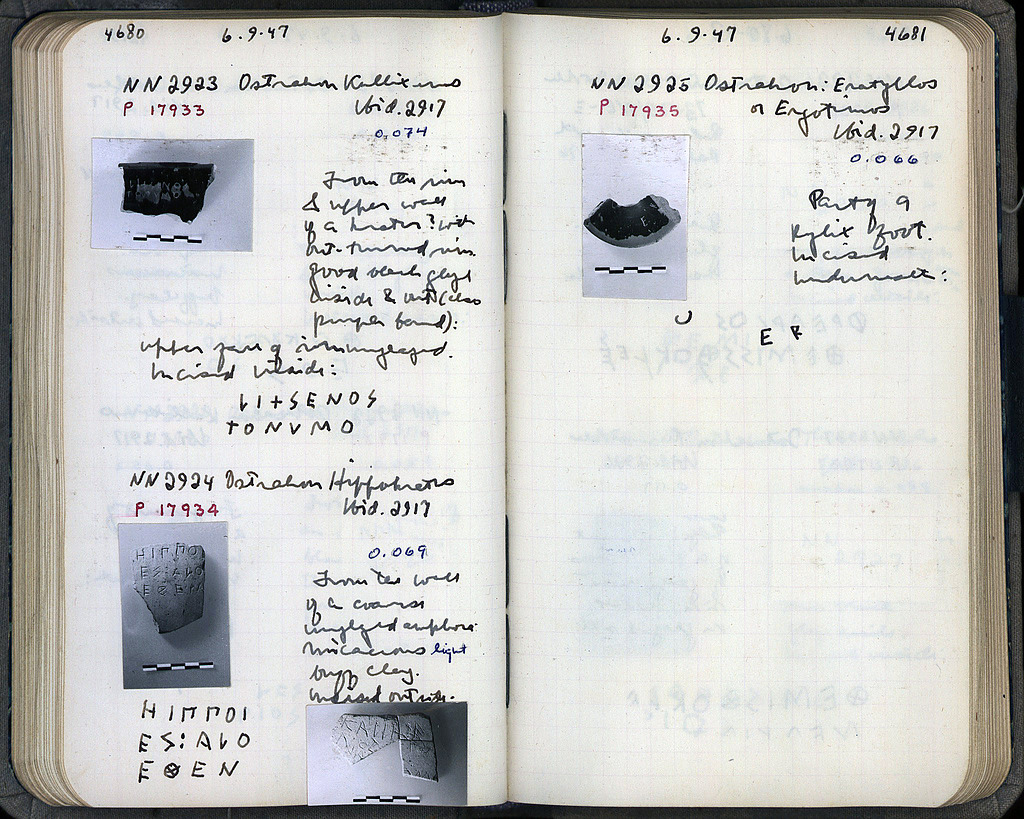 4680
6.9.47
NN 2923 Ostrakon Kallixenos
P 17933
Ibid. 2917
0.074
From the rim
& upper wall
of a krater? with
out-turned rim.
good black glaze
inside & out (also
purper band):
upper face of rim unglazed.
Incised inside:
LI+SENOS
TONVMO
NN 2924 Ostrakon Hippokrates
P 17934
Ibid. 2917
0.069
HIΠΠO
ES:ALO
EΘEN
From the wall
of a coarse
unglazed amphora
micaceous light
buff clay.
Incised outside.
HIΠΠOI
ES:ALO
E⊗EN
6.9.47
4681
NN 2925 Ostrakon: Eratyllos
or Ergotimos
P 17935
Ibid. 2917
0.066
Part of a
kylix foot.
Incised
underneath:
E R